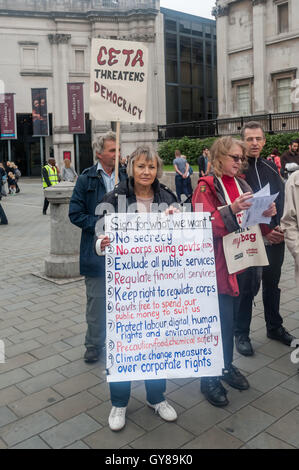 CETA
THREATENS
DEMOCRACY
Sign for what we want
1 No secrecy
2 No corps suing govts
3 Exclude all public services
4 Regulate financial services
5 Keep right to regulate corps
6 Govts free to spend our
public money to suit us
7 Protect labour, digital, human
rights and environment
8 Precaution-food, chemical safety
9 Climate change measures
over corporate rights
my
bag
alamy
Image ID: GY89K0
www.alamy.com